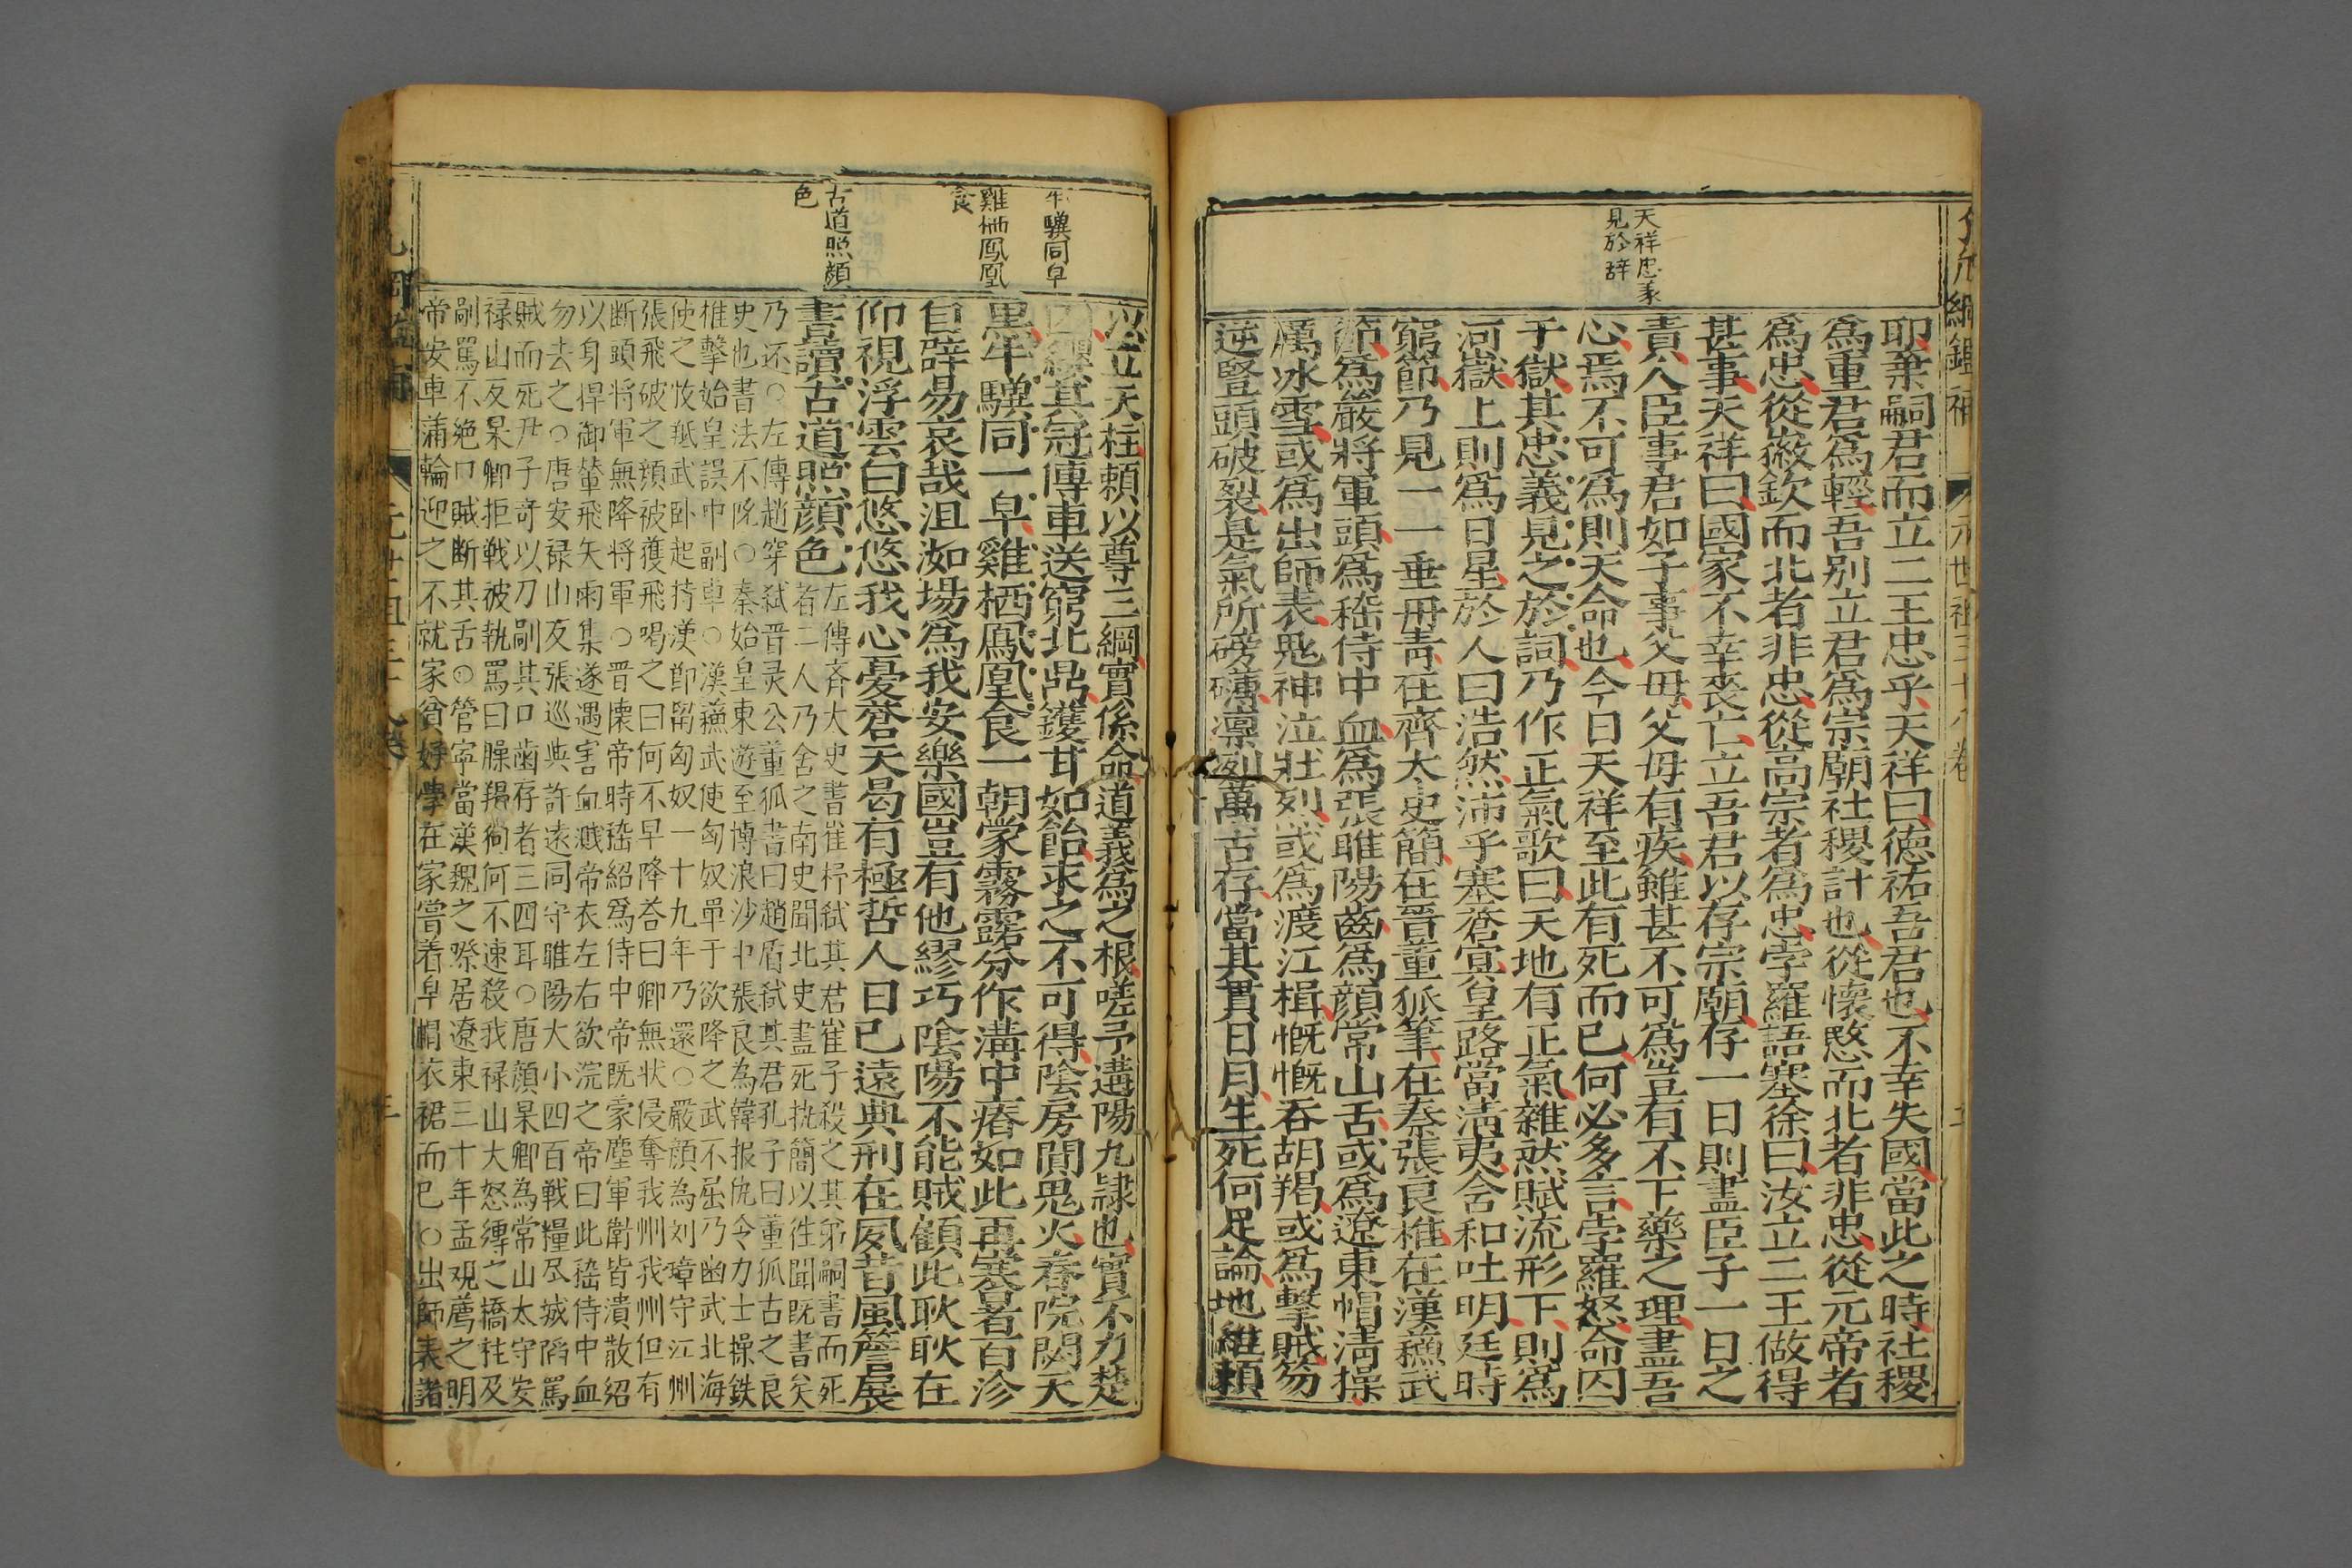 綱鑑補
元世祖三十八卷
天祥忠義
見於辞
耶棄嗣君而立二王忠乎天祥曰德祐吾君也不幸失國當此之時社稷
爲重君爲輕吾别立君爲宗廟社稷計也從懷愍而北者非忠從元帝者
爲忠從徽欽而北者非忠從高宗者爲忠孛羅語塞徐曰汝立二王做得
甚事天祥曰國家不幸喪亡立吾君以存宗廟存一日則盡臣子一日之
責人臣事君如子事父母父母有疾雖甚不可爲豈有不下藥之理盡吾
心焉不可爲則天命也今日天祥至此有死而已何必多言孛羅怒命囚
于獄其忠義見之於詞乃作正氣歌曰天地有正氣雜然賦流形下則爲
河嶽上則爲日星於人曰浩然沛乎塞蒼冥皇路當淸夷含和吐明廷時
窮節乃見一一垂丹靑在齊太史簡在晉董狐筆在秦張良椎在漢蘓武
節爲嚴將軍頭爲嵇侍中血爲張睢陽齒爲顏常山舌或爲遼東帽淸操
厲冰雪或爲出師表鬼神泣壯烈或爲渡江楫慨慨呑胡羯或爲擊賊笏
逆豎頭破裂是氣所磅礴凛冽萬古存當其貫日月生死何足論地維頼
牛驥同皁
雞栖鳳凰
食
古道照顔
色
以立天柱頼以尊三綱實係命道義爲之根嗟予遘陽九隷也實不力楚
囚纓其冠傳車送窮北鼎鑊甘如飴求之不可得陰房闃鬼火春院閟天
黒牛驥同一皁雞栖鳳凰食一朝蒙霧露分作溝中瘠如此再寒暑百沴
自辟易哀哉沮洳塲爲我安樂國豈有他繆巧陰陽不能賊顧此耿耿在
仰視浮雲白悠悠我心憂蒼天曷有極哲人日已遠典刑在夙昔風簷展
書讀古道照顔色
左傳斉大史書崔杼弑其君崔子殺之其弟嗣書而死
者二人乃舍之南史聞北史盡死执簡以徃聞既書矣
乃还○左傳趙穿弑晋灵公董狐書曰趙盾弑其君孔子曰董狐古之良
史也書法不隠○秦始皇東遊至博浪沙中張良為韓报仇令力士操鉄
椎擊始皇誤中副車○漢蘓武使匈奴單于欲降之武不屈乃幽武北海
使之牧羝武卧起持漢節畱匈奴一十九年乃還○嚴顔為刘璋守江州
張飛破之頚被獲飛喝之曰何不早降荅曰卿無状侵奪我州我州但有
断頭将軍無降将軍○晋懐帝時嵇紹爲侍中帝既蒙塵軍衛皆潰散紹
以身捍御輦飛矢雨集遂遇害血濺帝衣左右欲浣之帝曰此嵇侍中血
勿去之○唐安禄山反張巡與許遠同守睢陽大小四百戦糧尽城陷罵
賊而死尹子奇以刀剮其口齒存者三四耳○唐顔杲卿為常山太守安
禄山反杲卿拒戦被執罵曰臊羯狥何不速殺我禄山大怒縛之橋柱及
剮罵不絶口賊断其舌○管寜當漢魏之際居遼東三十年孟观薦之明
帝安車蒲輪迎之不就家貧好學在家嘗着皁帽衣裙而已○出師表諸